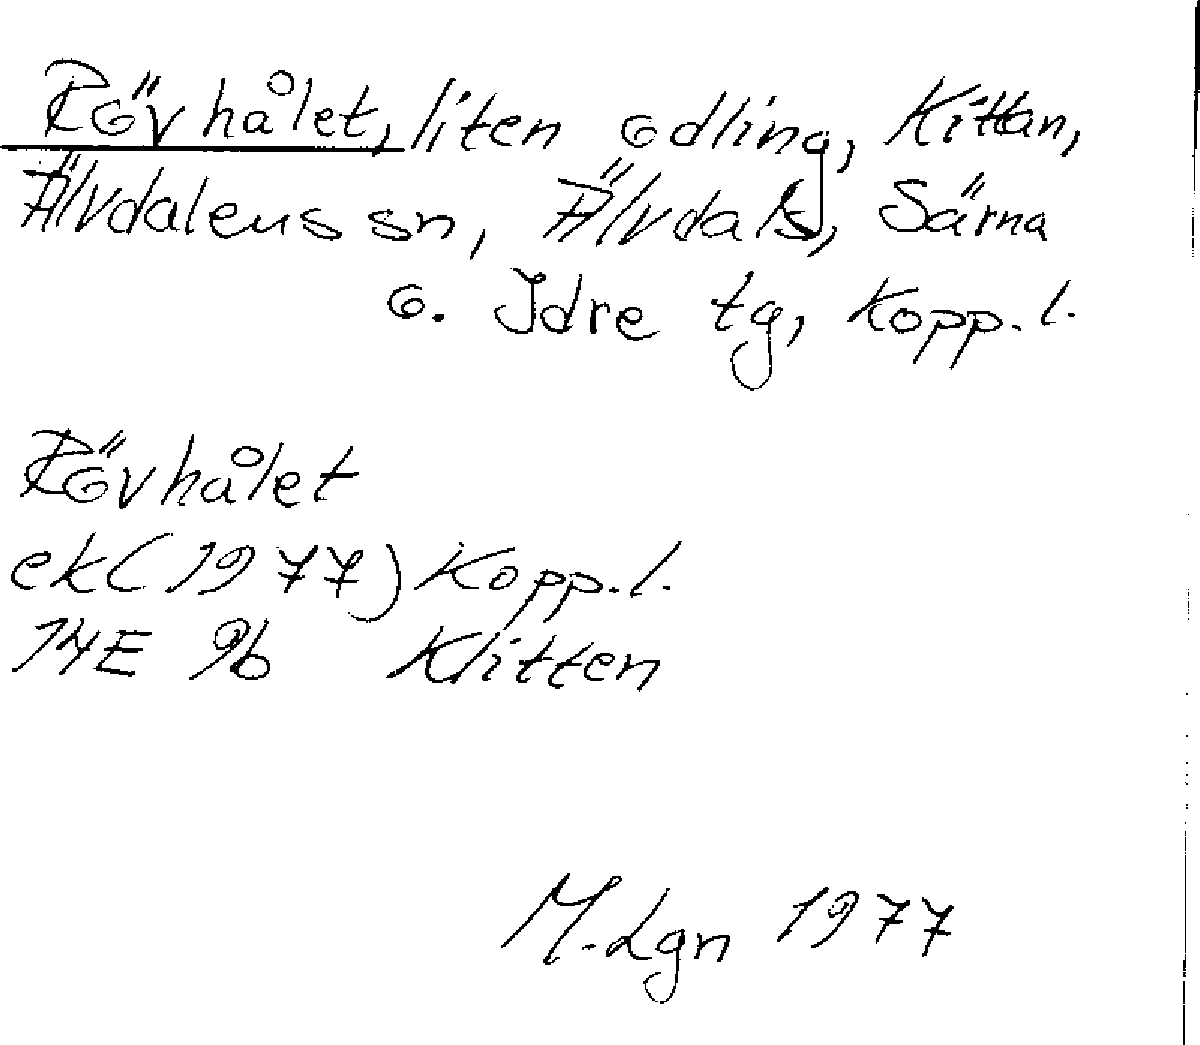 Rövhålet, liten odling, Kittan,
Älvdalens sn, Älvdals, Särna
o. Idre tg, Kopp. l.
Rövhålet
ek (1977) Kopp. l.
14E 9b Klitten
M. Lgn 1977